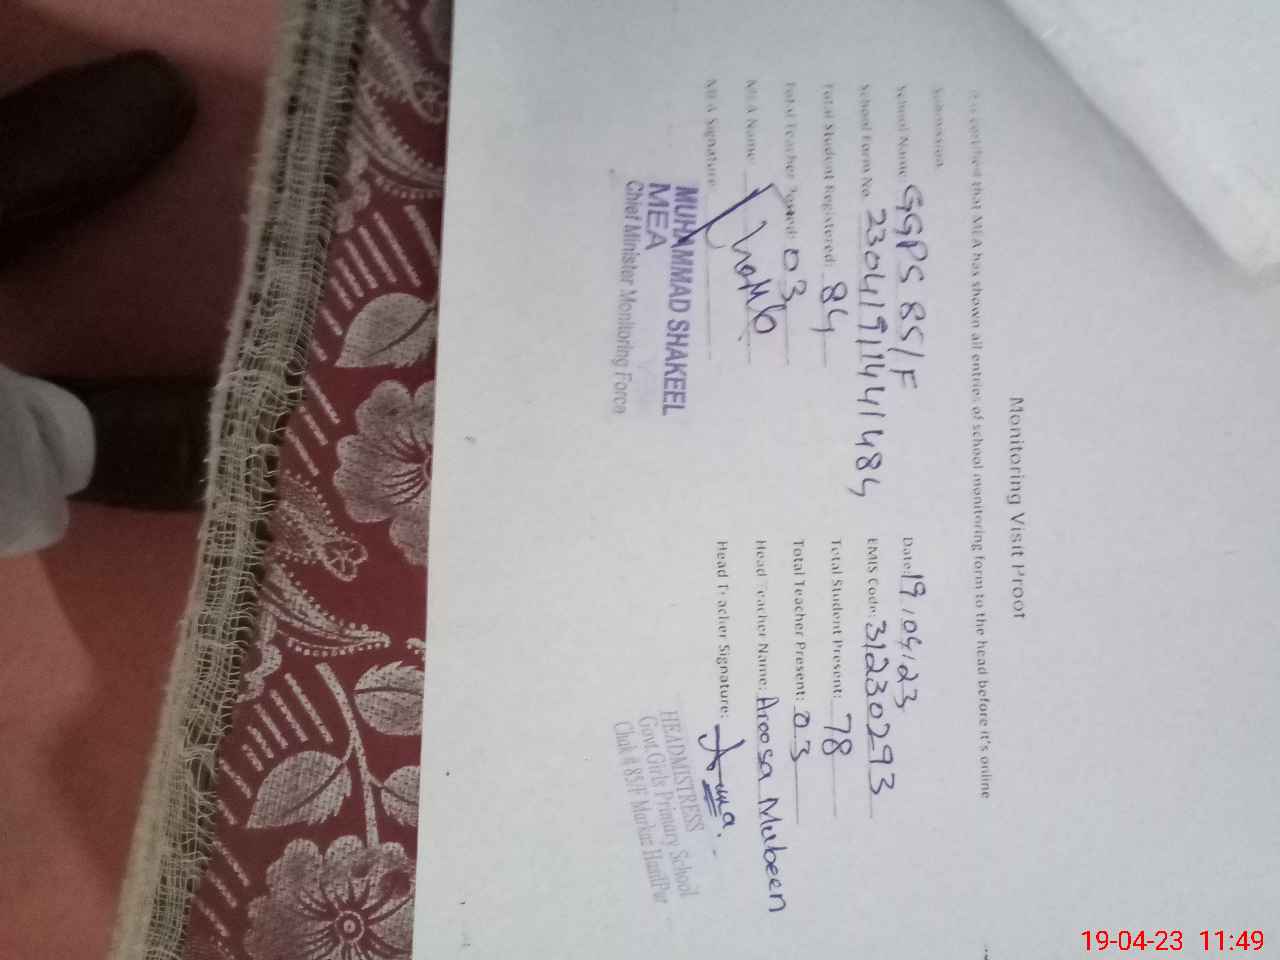 Monitoring Visit Proof
It is certified that MEA has shown all entries of school monitoring form to the head before it's online
Submission.
School Name: GGPS 85/F Date: 19/04/23
School Form No. 23041911441484 EMIS Code: 31230293
Total Student Registered: 84 Total Student Present: 78
Total Teacher Posted: 03 Total Teacher Present: 03
MEA Name: Head Teacher Name: Aroosa Mubeen
MEA Signature: Head Teacher Signature:
MUHAMMAD SHAKEEL
MEA
Chief Minister Monitoring Force
HEADMISTRESS
Govt Girls Primary School
Chak # 85/F Markaz
19-04-23 11:49